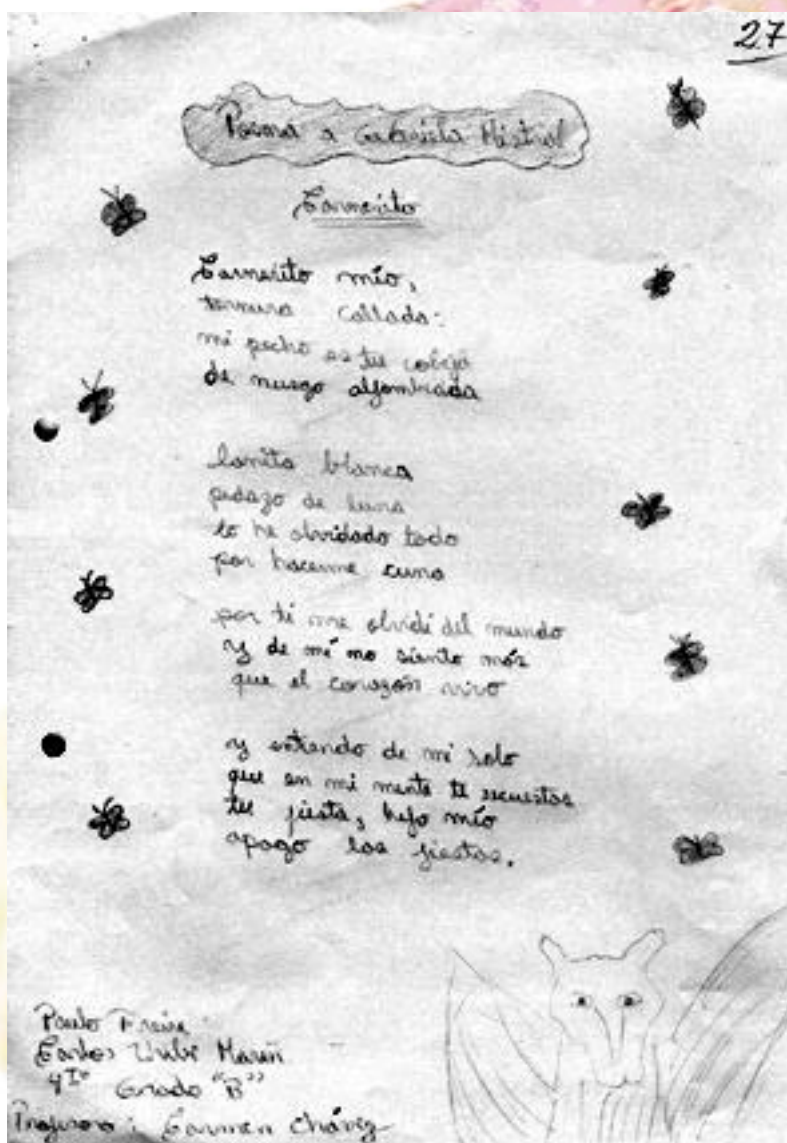 27
Poema a Gabriela Mistral
Carnerito
Carnerito mío,
ternura callada:
mi pecho es tu cobija
de musgo alfombrada
lanita blanca
pedazo de luna
lo he olvidado todo
por hacerme cuna
por ti me olvidé del mundo
y de mí no siento más
que el corazón vivo
y entiendo de mi solo
que en mi mente te recuestas
tu fiesta, hijo mío
apago las fiestas.
Paulo Freire
Carlos Uribe Marín
4to Grado "B"
Profesora: Carmen Chávez